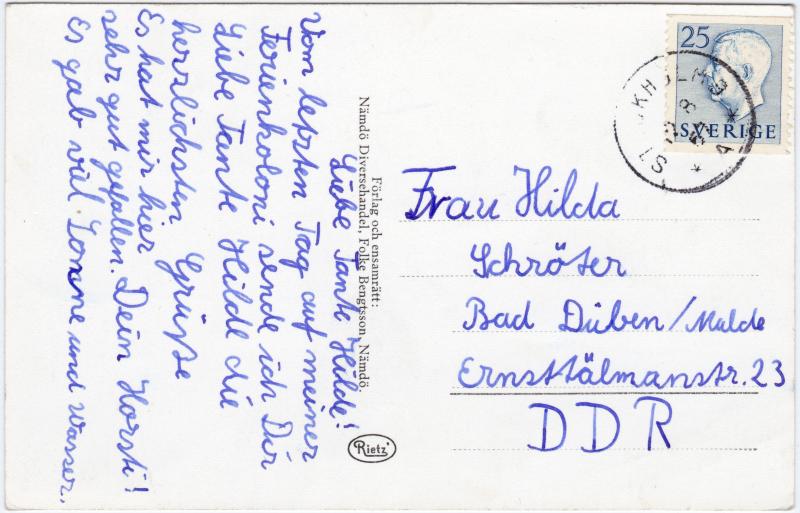 Liebe Tante Hilde!
Vom lepsten Tag auf meiner
Ferienkoloni sende ich Dir
Liebe Tante Hilde die
herrlichsten Grüße
Es hat mir hier
sehr gut gefallen. Dein Horsti!
Es gab viel Sonne und Wasser.
Förlag och ensamrätt:
Nämdö Diversehandel, Folke Bengtsson, Nämdö.
Rietz
25
SVERIGE
Frau Hilda
Schröter
Bad Düben/Mulde
Ernsttälmanstr. 23
DDR